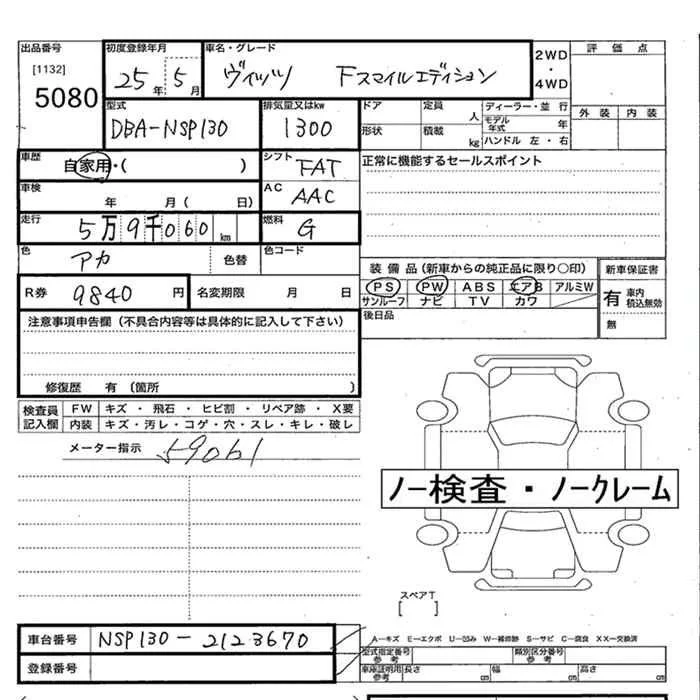 出品番号 初度登録年月 車名・グレード 2WD・4WD 評価点
[1132]
5080
25年 5月
ヴィッツ Fスマイルエディション
外装 内装
型式 排気量又はkw ドア 定員 人 ディーラー・並行
DBA-NSP130 1300
モデル年式 年
形状 積載 kg ハンドル 左・右
車歴 自家用・( ) シフト FAT 正常に機能するセールスポイント
車検 年 月( 日) AC AAC
走行 5万9千060km 燃料 G
色 アカ 色替 色コード
装備品(新車からの純正品に限り○印) 新車保証書
R券 9840円 名変期限 月 日
PS PW ABS エアB アルミW
サンルーフ ナビ TV カワ
有 車内積込無効
無
後日品
注意事項申告欄(不具合内容等は具体的に記入して下さい)
修復歴 有(箇所 )
検査員記入欄 FW キズ・飛石・ヒビ割・リペア跡・X要
内装 キズ・汚レ・コゲ・穴・スレ・キレ・破レ
メーター指示 59061
ノー検査・ノークレーム
スペアT
[ ]
車台番号 NSP130-2123670
登録番号
A―キズ E―エクボ U―凹み W―補修跡 S―サビ C―腐食 XX―交換済
型式指定番号 参考 類別区分番号 参考
車庫証明用 参考 長さ cm 幅 cm 高さ cm